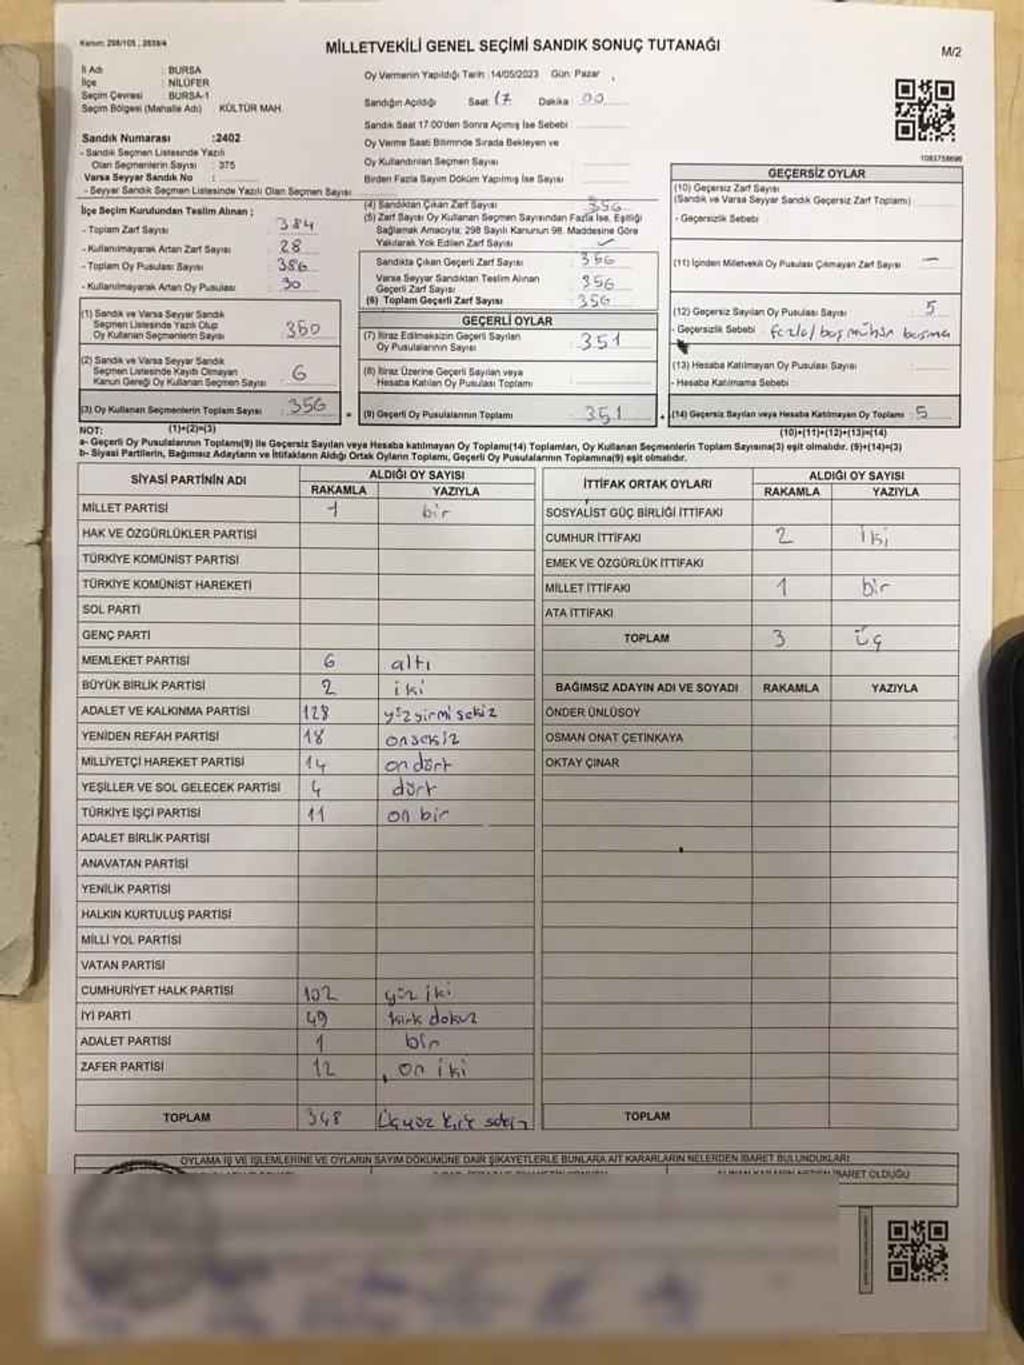 Kanun: 298/105 , 2839/4
MİLLETVEKİLİ GENEL SEÇİMİ SANDIK SONUÇ TUTANAĞI
M/2
İl Adı : BURSA
İlçe : NİLÜFER
Seçim Çevresi : BURSA-1
Seçim Bölgesi (Mahalle Adı) : KÜLTÜR MAH.
Oy Vermenin Yapıldığı Tarih 14/05/2023 Gün: Pazar
Sandığın Açıldığı Saat 17 Dakika 00
Sandık Saat 17:00'den Sonra Açımış İse Sebebi
Oy Verme Saati Bitiminde Sırada Bekleyen ve
Oy Kullandırılan Seçmen Sayısı
Birden Fazla Sayım Döküm Yapılmış İse Sayısı
1083758696
Sandık Numarası :2402
- Sandık Seçmen Listesinde Yazılı
Olan Seçmenlerin Sayısı : 375
Varsa Seyyar Sandık No :
- Seyyar Sandık Seçmen Listesinde Yazılı Olan Seçmen Sayısı
İlçe Seçim Kurulundan Teslim Alınan ;
- Toplam Zarf Sayısı 384
- Kullanılmayarak Artan Zarf Sayısı 28
- Toplam Oy Pusulası Sayısı 386
- Kullanılmayarak Artan Oy Pusulası 30
(1) Sandık ve Varsa Seyyar Sandık
Seçmen Listesinde Yazılı Olup
Oy Kullanan Seçmenlerin Sayısı 350
(2) Sandık ve Varsa Seyyar Sandık
Seçmen Listesinde Kaydı Olmayan
Kanun Gereği Oy Kullanan Seçmen Sayısı 6
(3) Oy Kullanan Seçmenlerin Toplam Sayısı 356
(1)+(2)=(3)
(4) Sandıktan Çıkan Zarf Sayısı 356
(5) Zarf Sayısı Oy Kullanan Seçmen Sayısından Fazla İse, Eşitliği
Sağlamak Amacıyla; 298 Sayılı Kanunun 98. Maddesine Göre
Yakılarak Yok Edilen Zarf Sayısı
Sandıkta Çıkan Geçerli Zarf Sayısı 356
Varsa Seyyar Sandıktan Teslim Alınan
Geçerli Zarf Sayısı 356
(6) Toplam Geçerli Zarf Sayısı 356
GEÇERLİ OYLAR
(7) İtiraz Edilmeksizin Geçerli Sayılan
Oy Pusulalarının Sayısı 351
(8) İtiraz Üzerine Geçerli Sayılan veya
Hesaba Katılan Oy Pusulası Toplamı
(9) Geçerli Oy Pusulalarının Toplamı 351
GEÇERSİZ OYLAR
(10) Geçersiz Zarf Sayısı
(Sandık ve Varsa Seyyar Sandık Geçersiz Zarf Toplamı)
- Geçersizlik Sebebi
(11) İçinden Milletvekili Oy Pusulası Çıkmayan Zarf Sayısı -
(12) Geçersiz Sayılan Oy Pusulası Sayısı 5
- Geçersizlik Sebebi fazla/boş mühür basma
(13) Hesaba Katılmayan Oy Pusulası Sayısı
- Hesaba Katılmama Sebebi
(14) Geçersiz Sayılan veya Hesaba Katılmayan Oy Toplamı 5
(10)+(11)+(12)+(13)=(14)
NOT:
a- Geçerli Oy Pusulalarının Toplamı(9) ile Geçersiz Sayılan veya Hesaba katılmayan Oy Toplamı(14) Toplamları, Oy Kullanan Seçmenlerin Toplam Sayısına(3) eşit olmalıdır. (9)+(14)=(3)
b- Siyasi Partilerin, Bağımsız Adayların ve İttifakların Aldığı Ortak Oyların Toplamı, Geçerli Oy Pusulalarının Toplamına(9) eşit olmalıdır.
SİYASİ PARTİNİN ADI ALDIĞI OY SAYISI
RAKAMLA YAZIYLA
MİLLET PARTİSİ 1 bir
HAK VE ÖZGÜRLÜKLER PARTİSİ
TÜRKİYE KOMÜNİST PARTİSİ
TÜRKİYE KOMÜNİST HAREKETİ
SOL PARTİ
GENÇ PARTİ
MEMLEKET PARTİSİ 6 altı
BÜYÜK BİRLİK PARTİSİ 2 iki
ADALET VE KALKINMA PARTİSİ 128 yüzyirmi sekiz
YENİDEN REFAH PARTİSİ 18 onsekiz
MİLLİYETÇİ HAREKET PARTİSİ 14 on dört
YEŞİLLER VE SOL GELECEK PARTİSİ 4 dört
TÜRKİYE İŞÇİ PARTİSİ 11 on bir
ADALET BİRLİK PARTİSİ
ANAVATAN PARTİSİ
YENİLİK PARTİSİ
HALKIN KURTULUŞ PARTİSİ
MİLLİ YOL PARTİSİ
VATAN PARTİSİ
CUMHURİYET HALK PARTİSİ 102 yüz iki
İYİ PARTİ 49 kırk dokuz
ADALET PARTİSİ 1 bir
ZAFER PARTİSİ 12 on iki
TOPLAM 348 Üçyüz kırk sekiz
İTTİFAK ORTAK OYLARI ALDIĞI OY SAYISI
RAKAMLA YAZIYLA
SOSYALİST GÜÇ BİRLİĞİ İTTİFAKI
CUMHUR İTTİFAKI 2 İki
EMEK VE ÖZGÜRLÜK İTTİFAKI
MİLLET İTTİFAKI 1 bir
ATA İTTİFAKI
TOPLAM 3 üç
BAĞIMSIZ ADAYIN ADI VE SOYADI RAKAMLA YAZIYLA
ÖNDER ÜNLÜSOY
OSMAN ONAT ÇETİNKAYA
OKTAY ÇINAR
TOPLAM
OYLAMA İŞ VE İŞLEMLERİNE VE OYLARIN SAYIM DÖKÜMÜNE DAİR ŞİKAYETLERLE BUNLARA AİT KARARLARIN NELERDEN İBARET BULUNDUKLARI
İBARET OLDUĞU